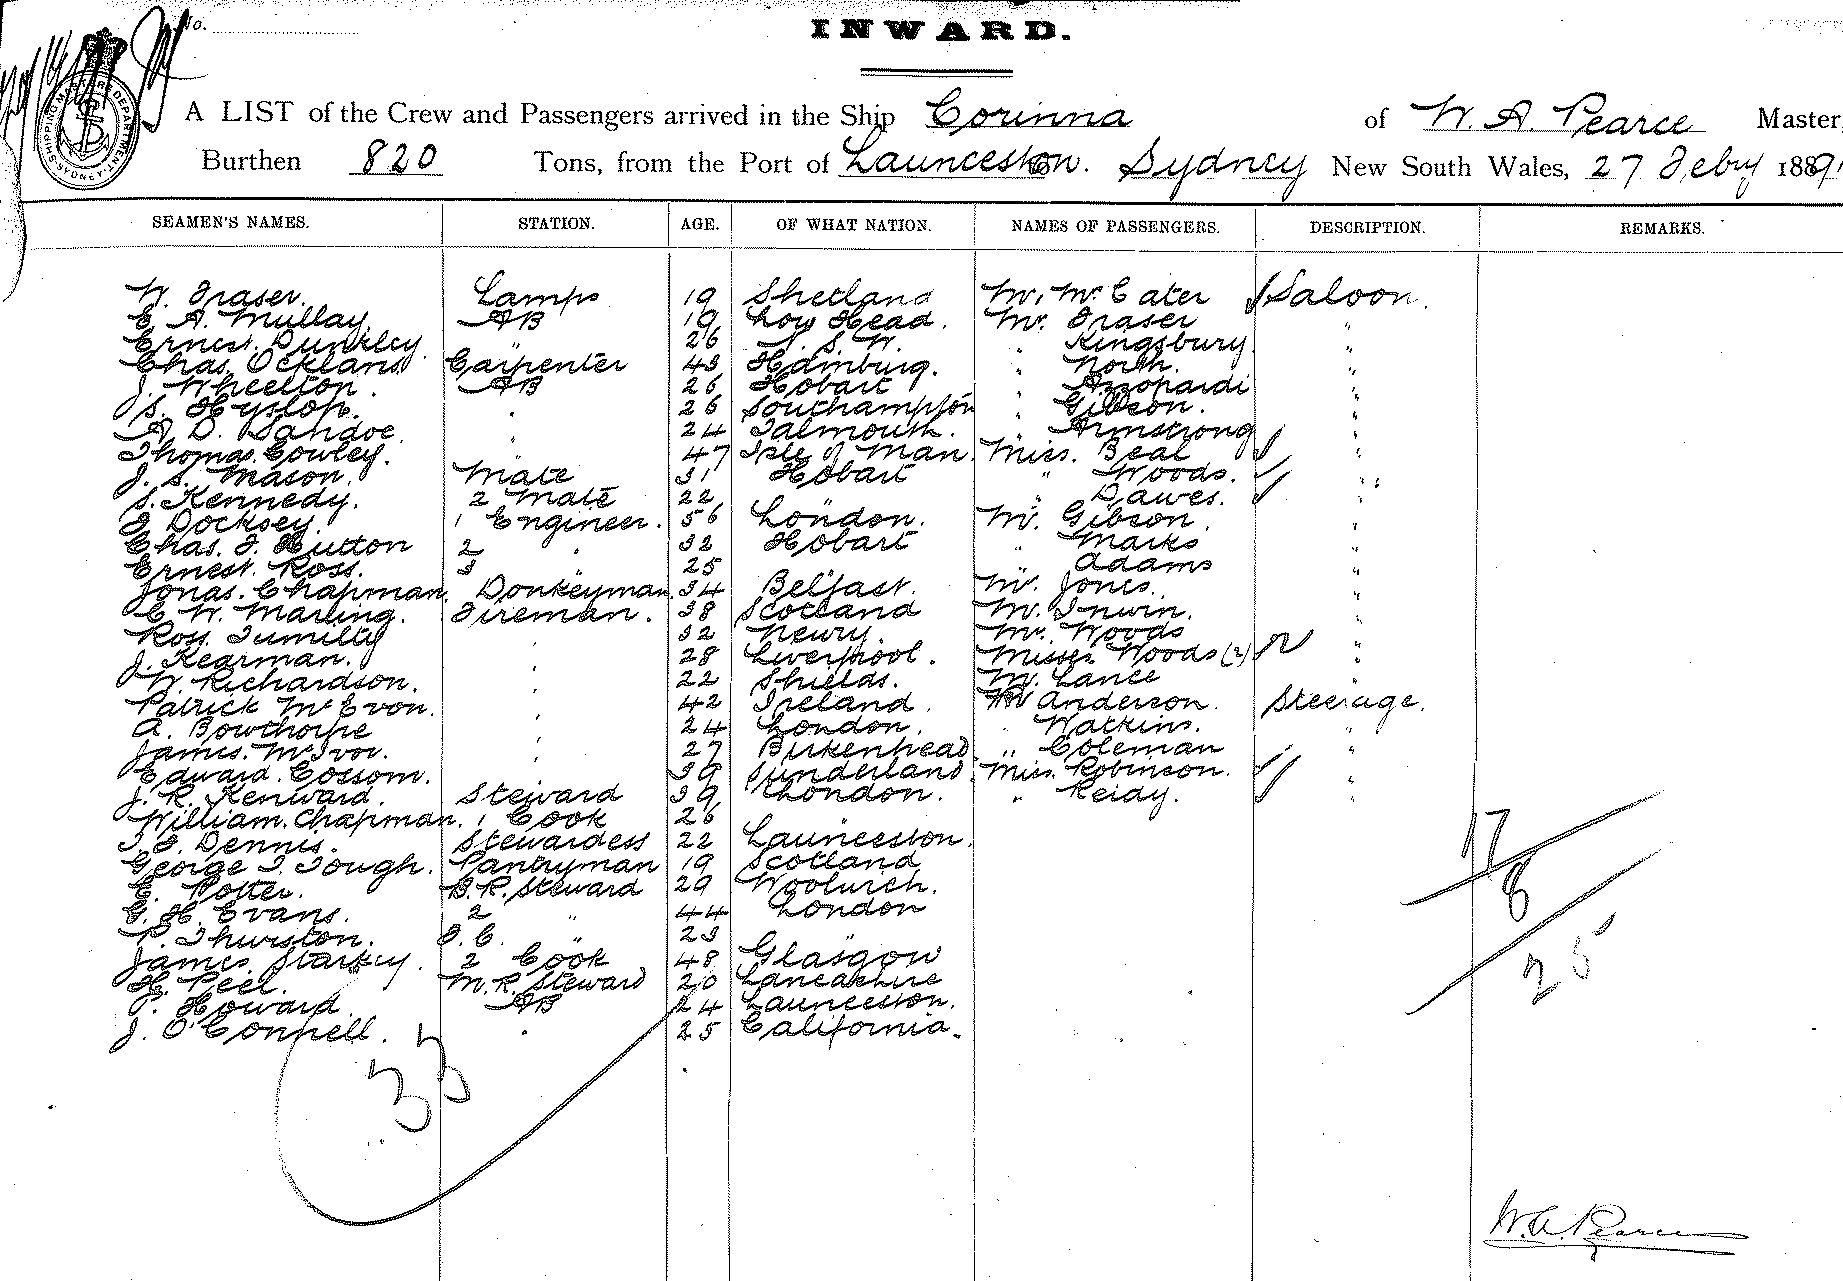 No.
INWARD.
A LIST of the Crew and Passengers arrived in the Ship Corinna of W. A. Pearce Master
Burthen 820 Tons, from the Port of Launceston. Sydney New South Wales, 27 Feby 1891
SEAMEN'S NAMES. STATION. AGE. OF WHAT NATION. NAMES OF PASSENGERS. DESCRIPTION. REMARKS.
W. Fraser. Lamps 19 Shetland Mr. McCater Saloon.
C. A. Mullay. AB 19 Low Head. Mr. Fraser "
Ernest Dunkley. " 26 N. S. W. " Kingsbury "
Chas. Ockland Carpenter 43 Hamburg. " North. "
J. Wheelton. AB 26 Hobart " Azzopardi "
S. Hyslop. " 26 Southampton " Gibson. "
A. D. Sandoe. " 24 Falmouth. " Armstrong "
Thomas Cowley. 47 Isle of Man. Miss. Beal "
J. S. Mason. Mate 31 Hobart " Woods. "
S. Kennedy. 2 Mate 22 " " Dawes. "
J. Docksey. 1 Engineer. 56 London. Mr. Gibson. "
Chas. F. Hutton 2 " 32 Hobart " Marks "
Ernest Ross. 3 25 " " Adams "
Jonas. Chapman. Donkeyman. 34 Belfast. Mr. Jones. "
C. W. Marling. Fireman. 38 Scotland Mr. Irwin. "
Ross Tumilty " 32 Newry. Mr. Woods "
J. Kearman. " 28 Liverpool. Misses Woods (2) "
W. Richardson. " 22 Shields. Mr. Lance "
Patrick McEvon. " 42 Ireland. Mr Anderson. Steerage.
A. Bowthorpe " 24 London. " Watkins. "
James. McIvor. " 27 Birkenhead " Coleman "
Edward. Cossom. " 39 Sunderland. Miss. Robinson. "
J. R. Kenward. Steward 39 London. " Reidy. "
William. Chapman. 1 Cook 26
Dennis. Stewardess 22 Launceston.
George T. Tough. Pantryman 19 Scotland
E. Potter. B.R. Steward 29 Woolwich.
G. H. Evans. 2 " 44 London
P. Thurston. F.C. " 23
James. Starkey. 2 Cook 48 Glasgow
H. Peel. M.R. Steward 20 Lancashire
J. Howard. AB 24 Launceston.
J. O'Connell. " 25 California.
17
8
25
33
W. A. Pearce